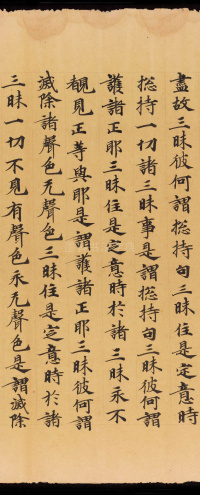 盡故三昧彼何謂捴持句三昧住是定意時
捴持一切諸三昧事是謂捴持句三昧彼何謂
護諸正耶三昧住是定意時於諸三昧永不
覩見正等與耶是謂護諸正耶三昧彼何謂
滅除諸聲色无聲色三昧住是定意時於諸
三昧一切不見有聲色永无聲色是謂滅除